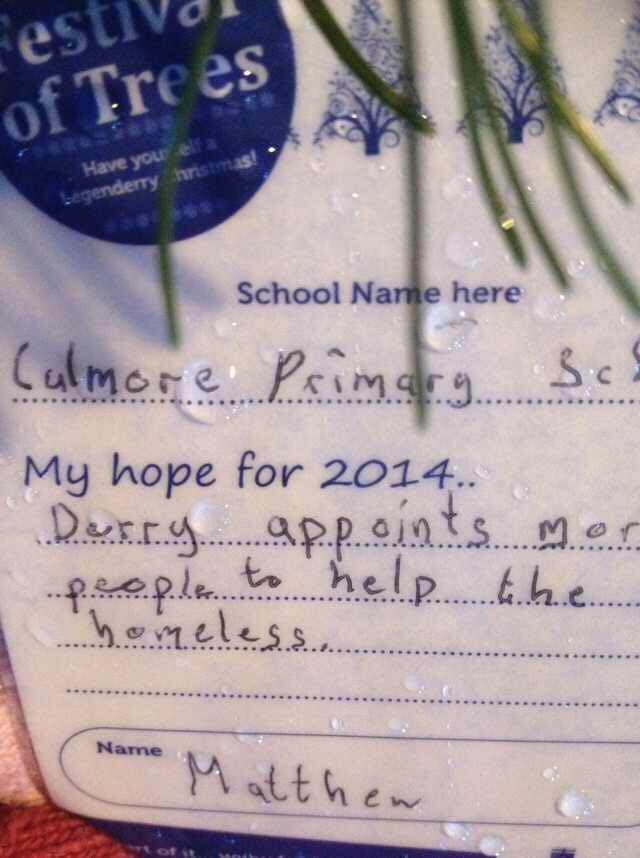 Festival
of Trees
Have yourself a
Legenderry Christmas!
School Name here
Culmore Primary Sc
My hope for 2014..
Derry appoints mor
people to help the
homeless.
Name
Matthew
rt of it